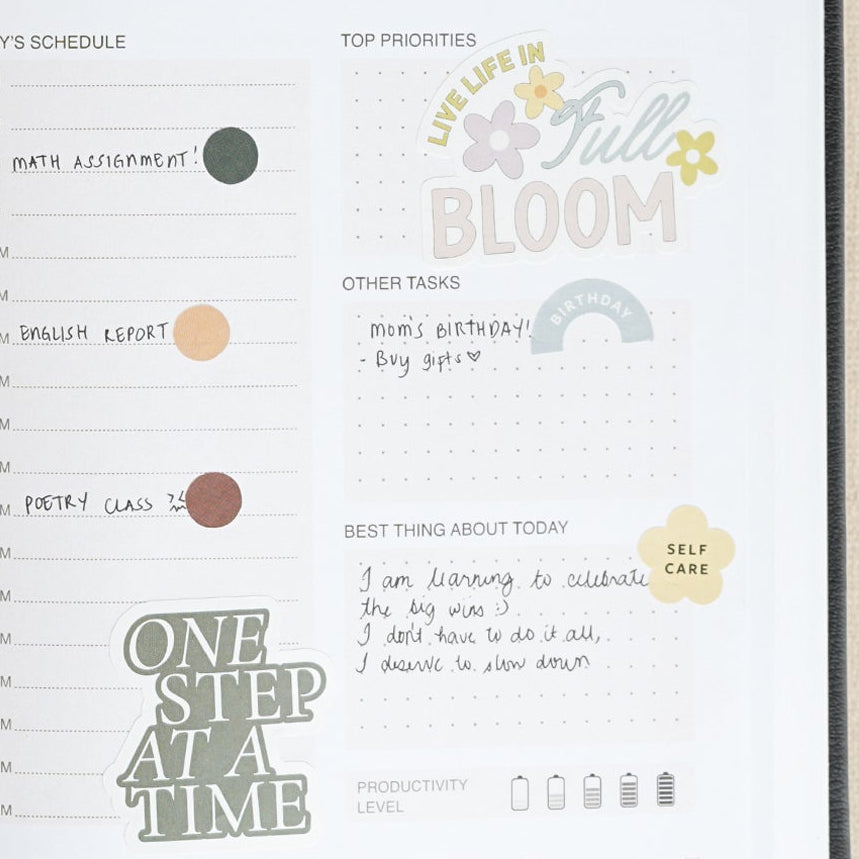 Y'S SCHEDULE
MATH ASSIGNMENT!
M
M
M
ENGLISH REPORT
M
M
M
M
POETRY CLASS
M
M
M
M
M
M
M
ONE
STEP
AT A
TIME
TOP PRIORITIES
LIVE LIFE IN
Full
BLOOM
OTHER TASKS
BIRTHDAY
MOM'S BIRTHDAY!
- Buy gifts ♡
BEST THING ABOUT TODAY
SELF
CARE
I am learning to celebrate
the big wins :)
I don't have to do it all,
I deserve to slow down
PRODUCTIVITY
LEVEL